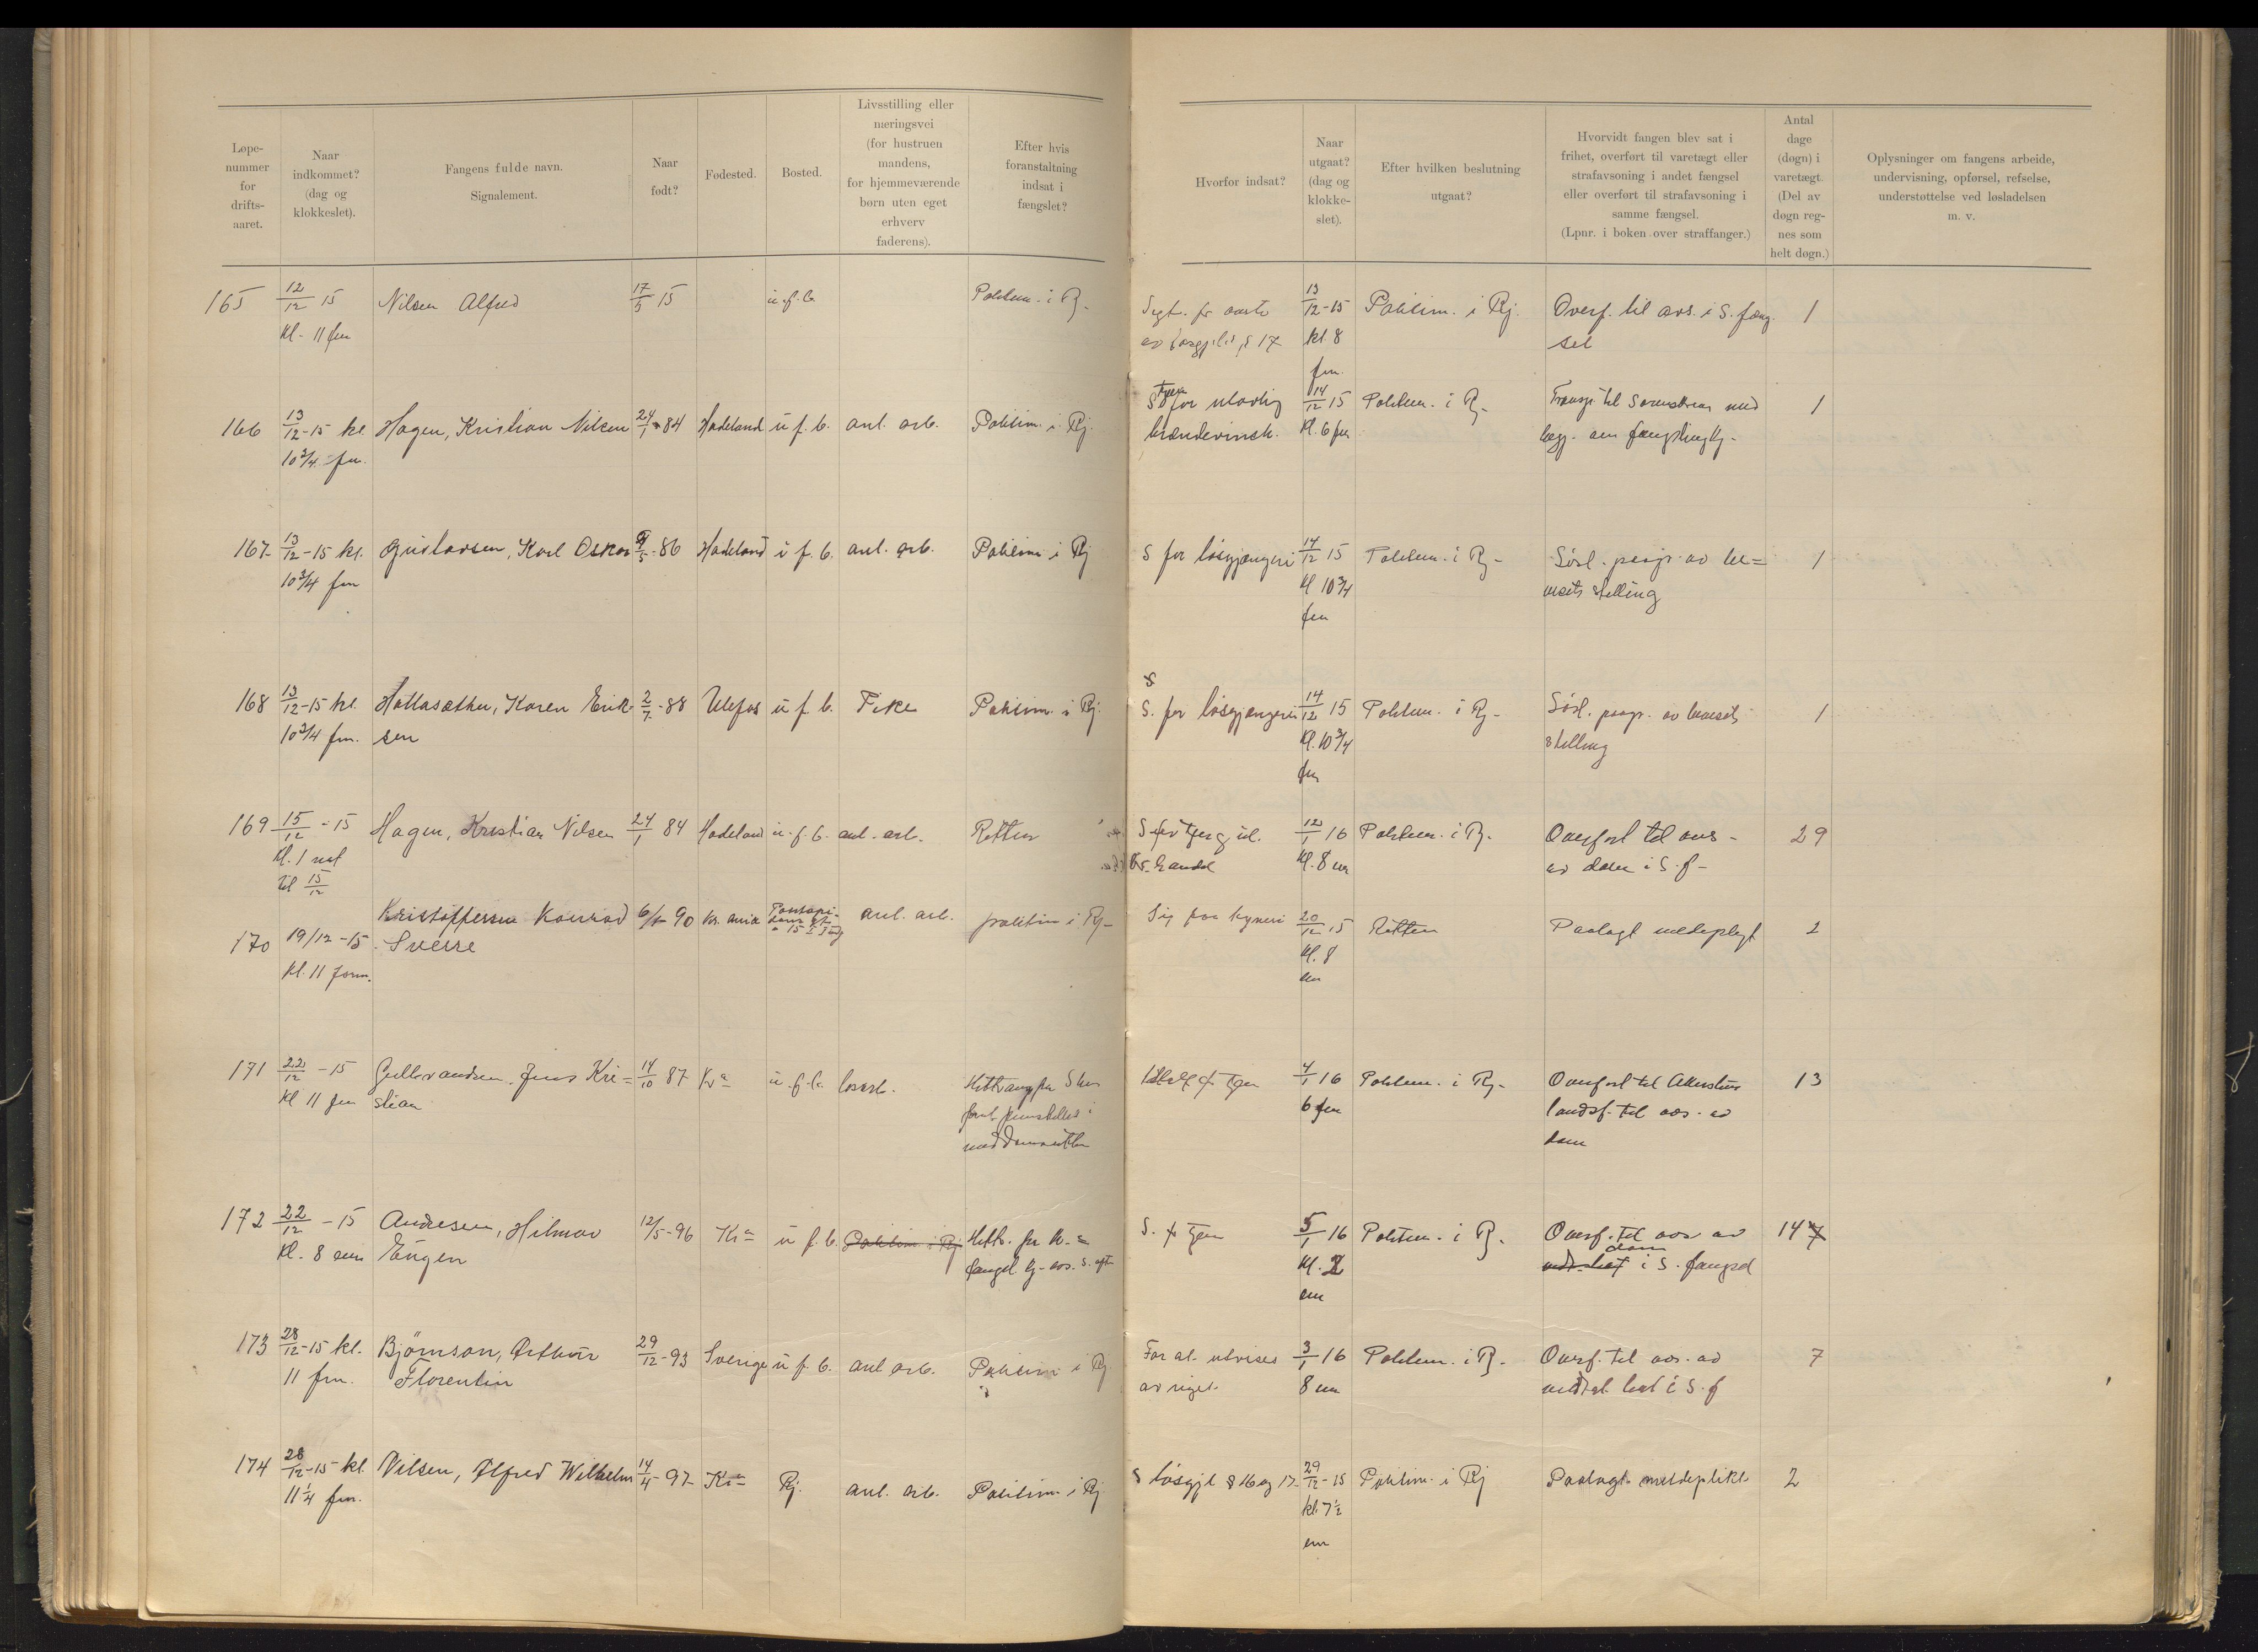 Løpe-
nummer
for
drifts-
aaret.
Naar
indkommet?
(dag og
klokkeslet).
Fangens fulde navn.
Signalement.
Naar
født?
Fødested.
Bosted.
Livsstilling eller
næringsvei
(for hustruen
mandens,
for hjemmeværende
børn uten eget
erhverv
faderens).
Efter hvis
foranstaltning
indsat i
fængslet?
Hvorfor indsat?
Naar
utgaat?
(dag og
klokke-
slet).
Efter hvilken beslutning
utgaat?
Hvorvidt fangen blev sat i
frihet, overført til varetægt eller
strafavsoning i andet fængsel
eller overført til strafavsoning i
samme fængsel.
(Lpnr. i boken over straffanger.)
Antal
dage
(døgn) i
varetægt.
(Del av
døgn reg-
nes som
helt døgn.)
Oplysninger om fangens arbeide,
undervisning, opførsel, refselse,
understøttelse ved løsladelsen
m. v.
165 12/12 15 Nilsen Alfred 17/5 15 u.f.b. Politim. i Rj. 13/12-15 Politim. i Rj. Overf. til avs. i S. fæng- 1
kl. 11 fm av § 17 kl. 8 sel
fm.
166 13/12-15 kl. Hagen, Kristian Nilsen 24/1-84 Hadeland u f. b. anl. arb. Politim. i Rj. S for ulovlig 14/12 15 Politim. i Rj- Transp. til Sorenskriver med 1
10 3/4 fm. brændevinsh. kl. 6 fm begj. om fængsling
167 13/12-15 kl. Gustavsen, Karl Oskar 9/5-86 Hadeland u f. b. anl. arb. Politim. i Rj S for løsgjængeri 14/12 15 Politim. i Rj- Løsl. paagr. av be= 1
10 3/4 fm kl 10 3/4 vœts stilling
fm
168 13/12-15 kl. Hattasæther, Karen Erik- 2/7-88 Ulefos u f. b. Pike Politim. i Rj. S. for løsgjængeri 14/12 15 Politim. i Rj- Løsl. paagr. av bevisets 1
10 3/4 fm. sen kl. 10 3/4 stilling
fm
169 15/12-15 Hagen, Kristian Nilsen 24/1 84 Hadeland u.f.b. anl. arb. Retten S for tyveri og ul. 12/1 16 Politim. i Rj. Overført til avs- 29
kl. 1 mf br. handel kl. 8 em av dom i S. f-
til 15/12
170 19/12-15 Kristoffersen Konrad 90 Kr.ania anl. arb. politim i Rj- Sig for tyveri 20/12 15 Retten Paalagt meldeplegt 2
kl. 11 form. Sverre kl. 8
em
171 22/12-15 Gulbrandsen, Jens Kri= 14/10 87 Kr a u.f.b. løsarb. for tyveri 4/1 16 Politim. i Rj- Overført til Akershus 13
kl 11 fm stian 6 fm landsf. til avs. av
dom
172 22/12-15 Andresen, Hilmar 12/5-96 Kr a u f. b. Politim. i Rj S. f tyveri 5/1 16 Politim. i Rj. Overf. til avs av 14
kl. 8 em Eugen fængsel kl. 2 dom i S. fængsel
em
173 28/12-15 kl. Bjørnson, Arthur 29/12-93 Sverige u f. b. anl arb. Politim i Rj For at utvises 3/1 16 Politim. i Rj. Overf. til avs. av 7
11 fm. Florentin av riget. 8 em vedtat bot i S. f
174 28/12-15 kl. Nilsen, Alfred Wilhelm 14/4-97 Kr a Rj. anl. arb. Politim i Rj S løsgjl § 16 og 17 29/12-15 Politim. i Rj Paalagt meldeplikt 2
11 1/4 fm. kl. 7 1/2
em